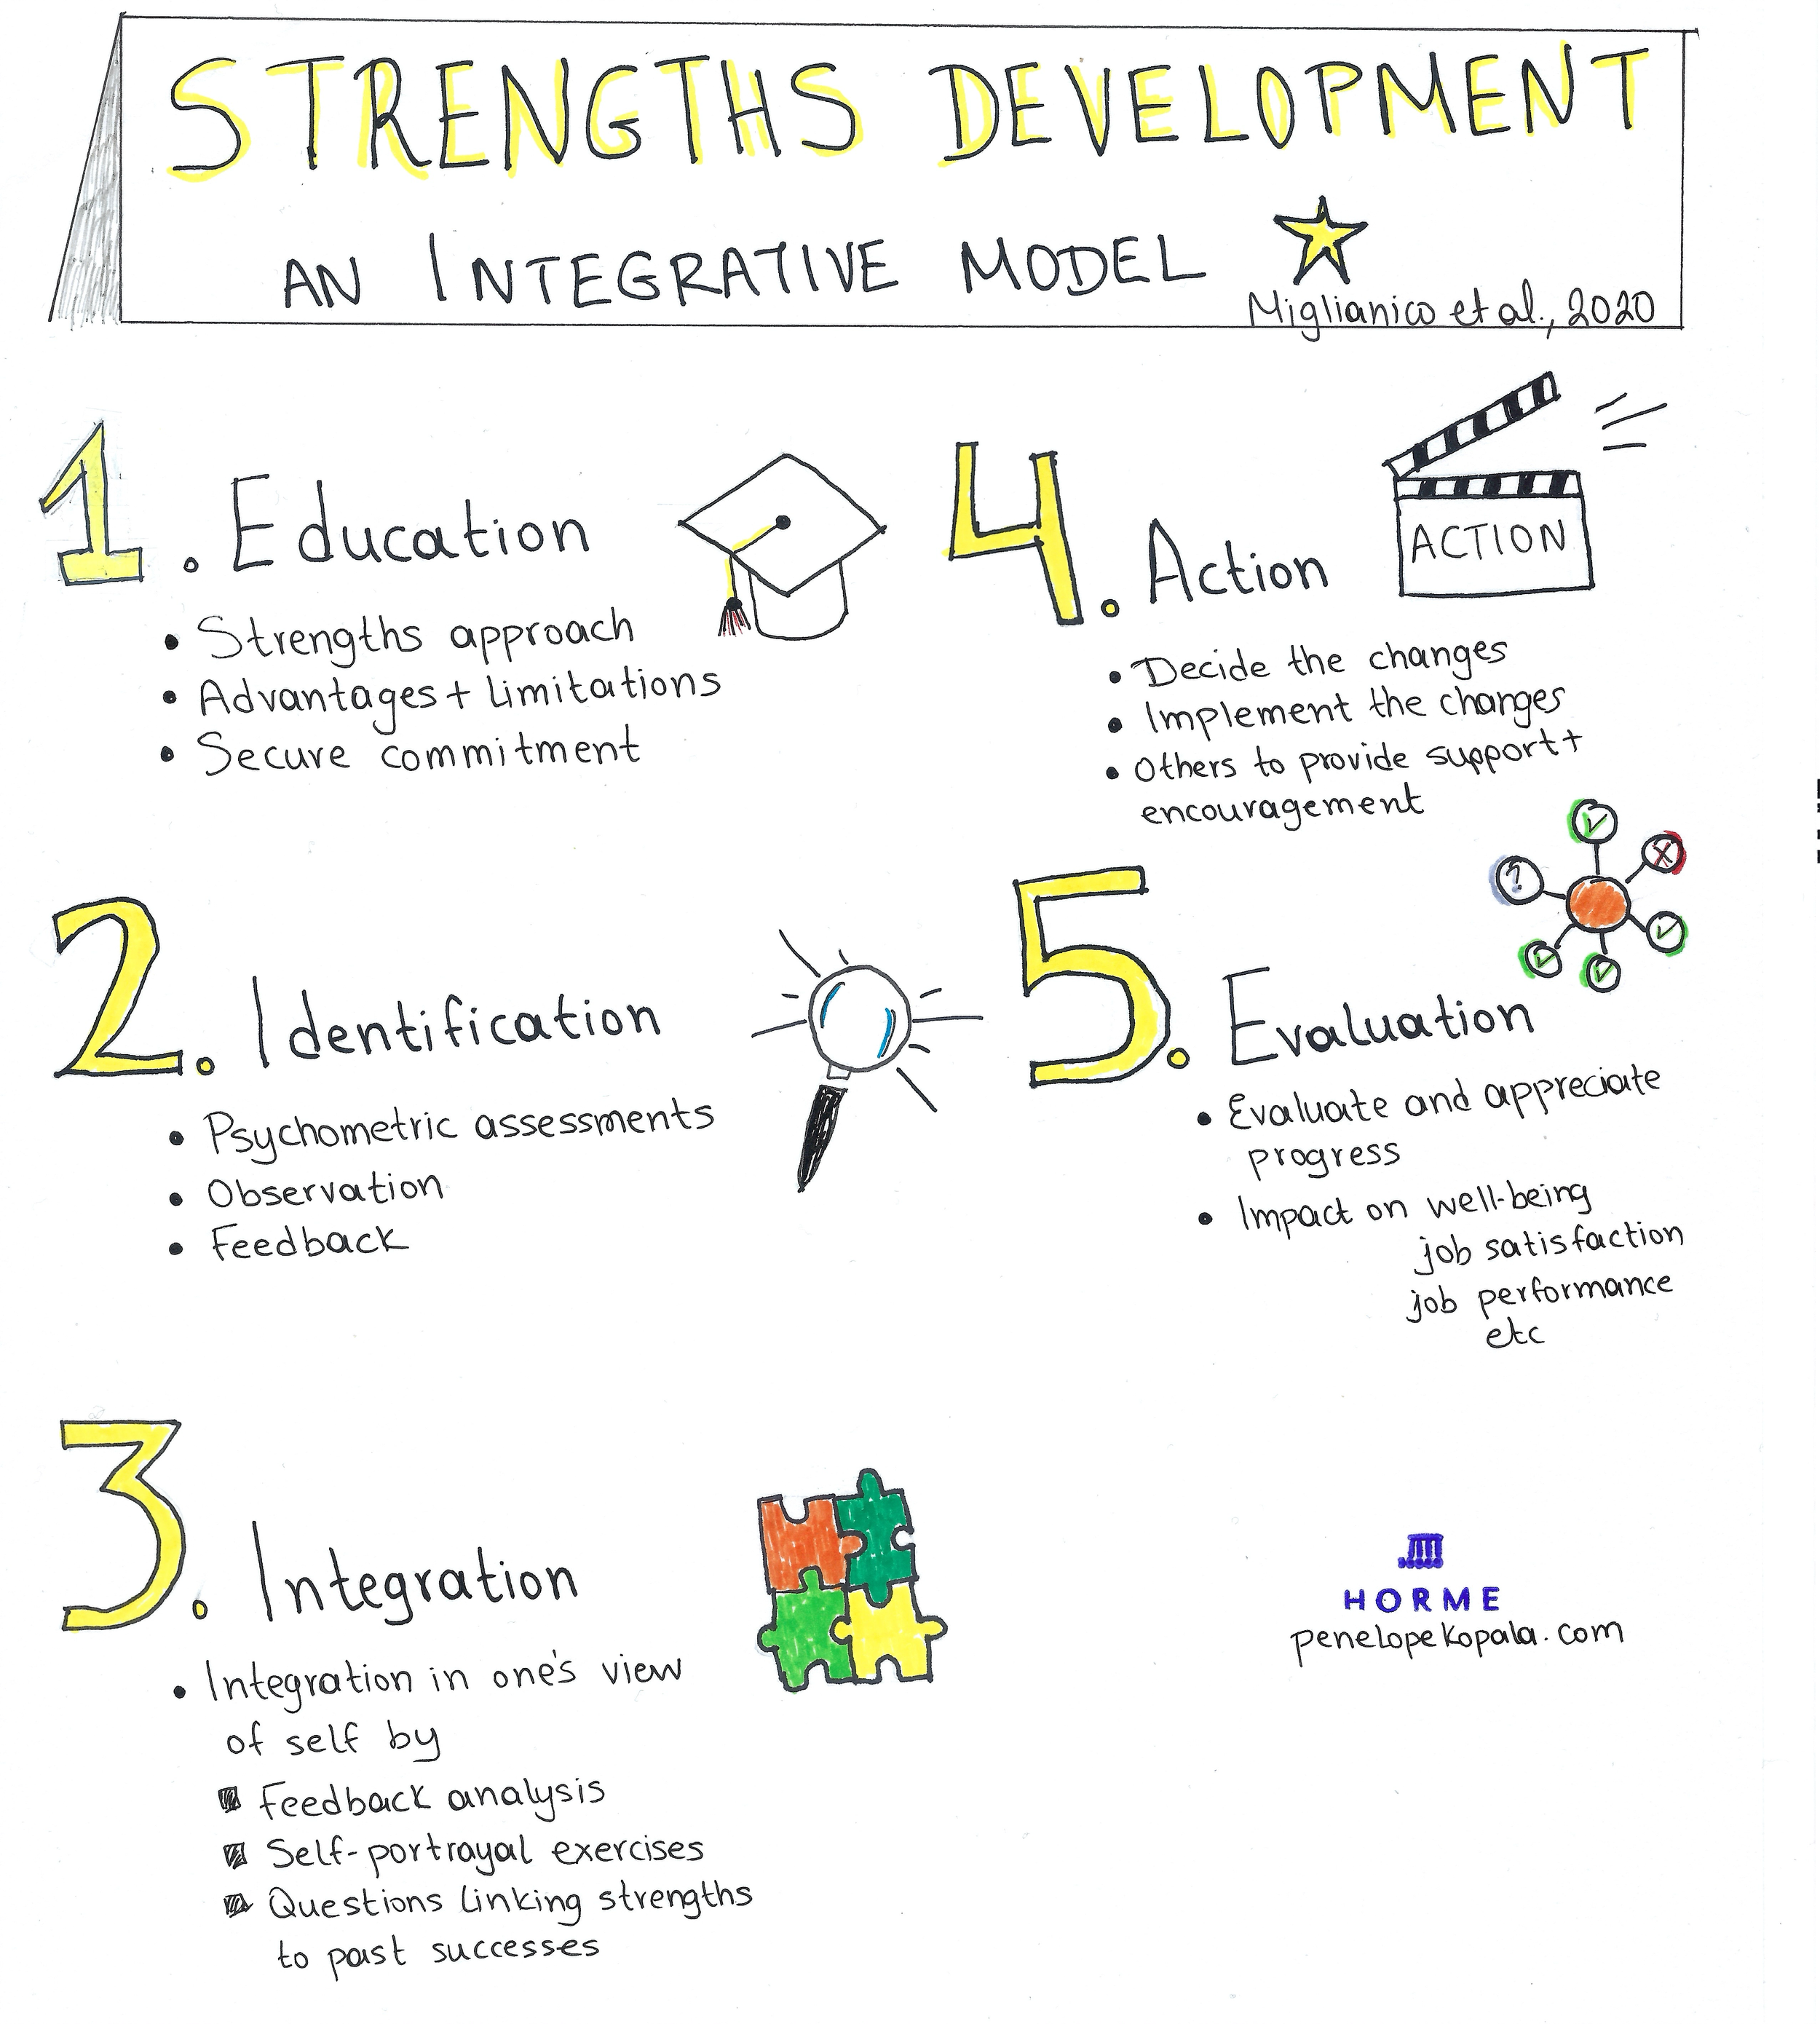 STRENGTHS DEVELOPMENT
AN INTEGRATIVE MODEL
Miglianico et al., 2020
1. Education
• Strengths approach
• Advantages + limitations
• Secure commitment
2. Identification
• Psychometric assessments
• Observation
• Feedback
3. Integration
• Integration in one's view
of self by
▪ Feedback analysis
▪ Self-portrayal exercises
▪ Questions linking strengths
to past successes
4. Action
ACTION
• Decide the changes
• Implement the changes
• Others to provide support +
encouragement
?
5. Evaluation
• Evaluate and appreciate
progress
• Impact on well-being
job satisfaction
job performance
etc
HORME
penelopekopala.com